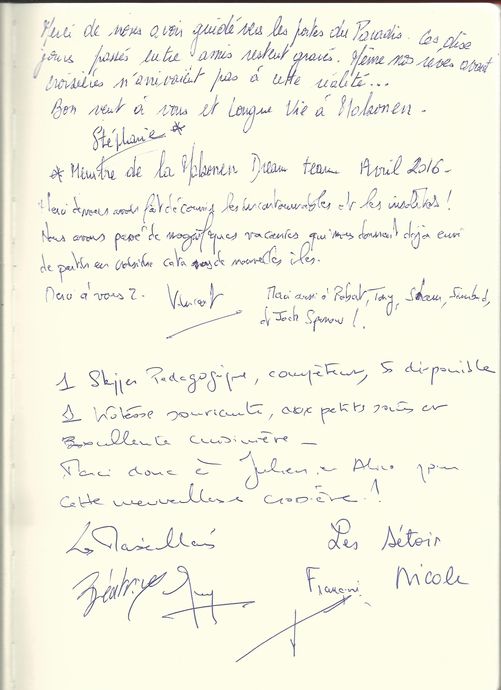 Merci de nous avoir guidé vers les portes du Paradis. Ces dix
jours passés entre amis restent gravés. Même nos rêves avant
croisières n'arrivaient pas à cette réalité...
Bon vent à vous et Longue Vie à Molsonen.
Stéphanie *
* Membre de la Molsonen Dream team Avril 2016-
Merci de nous avoir fait découvrir les incontournables et les insolites !
Nous avons passé de magnifiques vacances qui nous donnent déjà envie
de partir en voisine cata de nouvelles îles.
Merci à vous 2. Vincent
Merci aussi à Robert, Tony, Simbad,
et Jack Sparrow !
1 Skipper Pédagogique, compétent, disponible
1 Hôtesse souriante, aux petits soins et
Excellente cuisinière -
Merci donc à Julien et Alice pour
cette merveilleuse croisière !
Les Marseillais
Les Sétois
Béatrice Guy
François Nicole